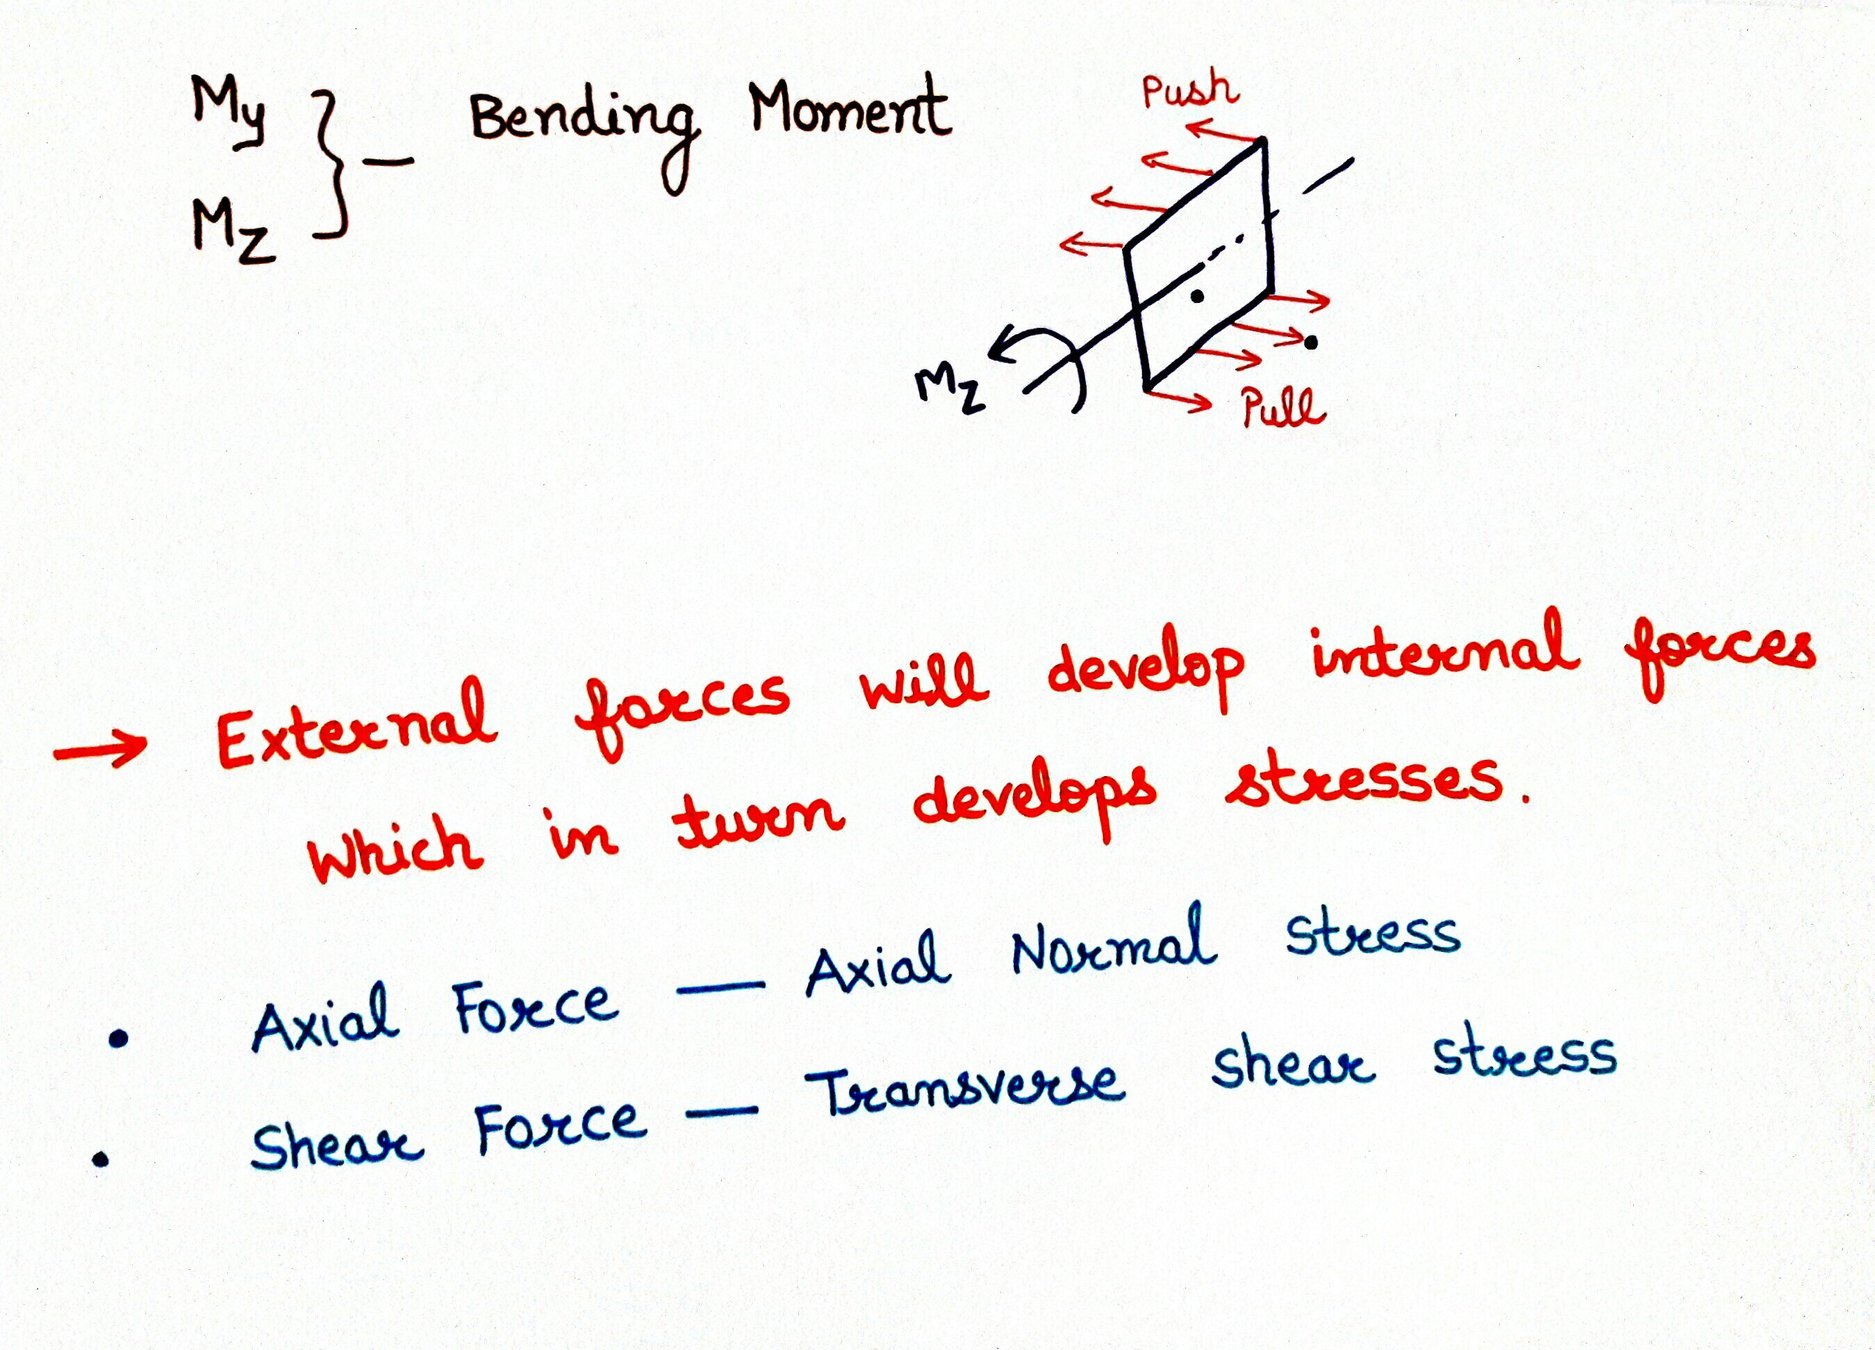 My
Mz
} — Bending Moment
Push
Mz
Pull
→ External forces will develop internal forces
Which in turn develops stresses.
• Axial Force — Axial Normal stress
• Shear Force — Transverse shear stress